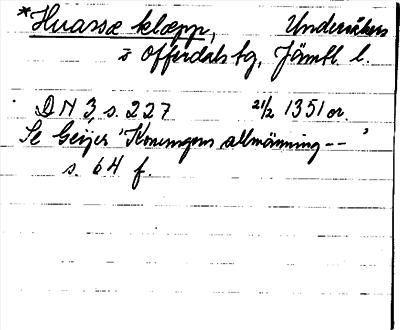 *Huassæ klæpp, Undersåkers
i Offerdals tg, Jämtl l.
DN 3, s. 227 21/2 1351 or.
Se Geijer "Konungens allmänning -- "
s. 64 f.